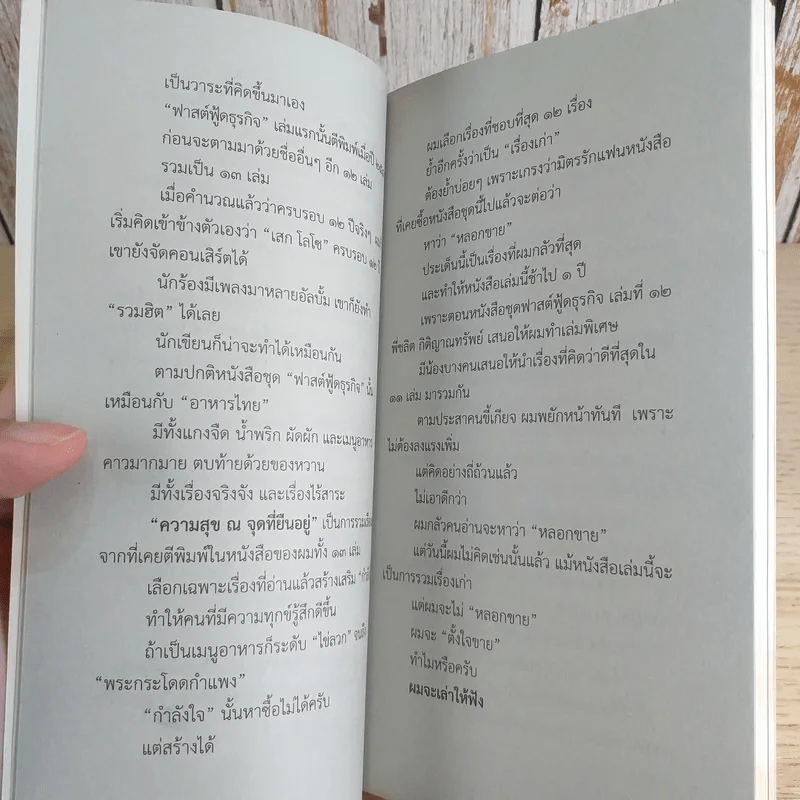 เป็นวาระที่คิดขึ้นมาเอง
“ฟาสต์ฟู้ดธุรกิจ” เล่มแรกนั้นตีพิมพ์เมื่อปี
ก่อนจะตามมาด้วยชื่ออื่นๆ อีก ๑๒ เล่ม
รวมเป็น ๑๓ เล่ม
เมื่อคำนวณแล้วว่าครบรอบ ๑๒ ปีจริงๆ
เริ่มคิดเข้าข้างตัวเองว่า “เสก โลโซ” ครบรอบ ๑๒ ปี
เขายังจัดคอนเสิร์ตได้
นักร้องมีเพลงมาหลายอัลบั้ม เขาก็ยังทำ
“รวมฮิต” ได้เลย
นักเขียนก็น่าจะทำได้เหมือนกัน
ตามปกติหนังสือชุด “ฟาสต์ฟู้ดธุรกิจ” นั้น
เหมือนกับ “อาหารไทย”
มีทั้งแกงจืด น้ำพริก ผัดผัก และเมนูอาหาร
คาวมากมาย ตบท้ายด้วยของหวาน
มีทั้งเรื่องจริงจัง และเรื่องไร้สาระ
“ความสุข ณ จุดที่ยืนอยู่” เป็นการรวมเรื่อง
จากที่เคยตีพิมพ์ในหนังสือของผมทั้ง ๑๓ เล่ม
เลือกเฉพาะเรื่องที่อ่านแล้วสร้างเสริม
ทำให้คนที่มีความทุกข์รู้สึกดีขึ้น
ถ้าเป็นเมนูอาหารก็ระดับ “ไข่ลวก” จนถึง
“พระกระโดดกำแพง”
“กำลังใจ” นั้นหาซื้อไม่ได้ครับ
แต่สร้างได้
ผมเลือกเรื่องที่ชอบที่สุด ๑๒ เรื่อง
ย้ำอีกครั้งว่าเป็น “เรื่องเก่า”
ต้องย้ำบ่อยๆ เพราะเกรงว่ามิตรรักแฟนหนังสือ
ที่เคยซื้อหนังสือชุดนี้ไปแล้วจะต่อว่า
หาว่า “หลอกขาย”
ประเด็นนี้เป็นเรื่องที่ผมกลัวที่สุด
และทำให้หนังสือเล่มนี้ช้าไป ๑ ปี
เพราะตอนหนังสือชุดฟาสต์ฟู้ดธุรกิจ เล่มที่ ๑๒
พี่ชลิต กิติญาณทรัพย์ เสนอให้ผมทำเล่มพิเศษ
มีน้องบางคนเสนอให้นำเรื่องที่คิดว่าดีที่สุดใน
๑๑ เล่ม มารวมกัน
ตามประสาคนขี้เกียจ ผมพยักหน้าทันที เพราะ
ไม่ต้องลงแรงเพิ่ม
แต่คิดอย่างถี่ถ้วนแล้ว
ไม่เอาดีกว่า
ผมกลัวคนอ่านจะหาว่า “หลอกขาย”
แต่วันนี้ผมไม่คิดเช่นนั้นแล้ว แม้หนังสือเล่มนี้จะ
เป็นการรวมเรื่องเก่า
แต่ผมจะไม่ “หลอกขาย”
ผมจะ “ตั้งใจขาย”
ทำไมหรือครับ
ผมจะเล่าให้ฟัง